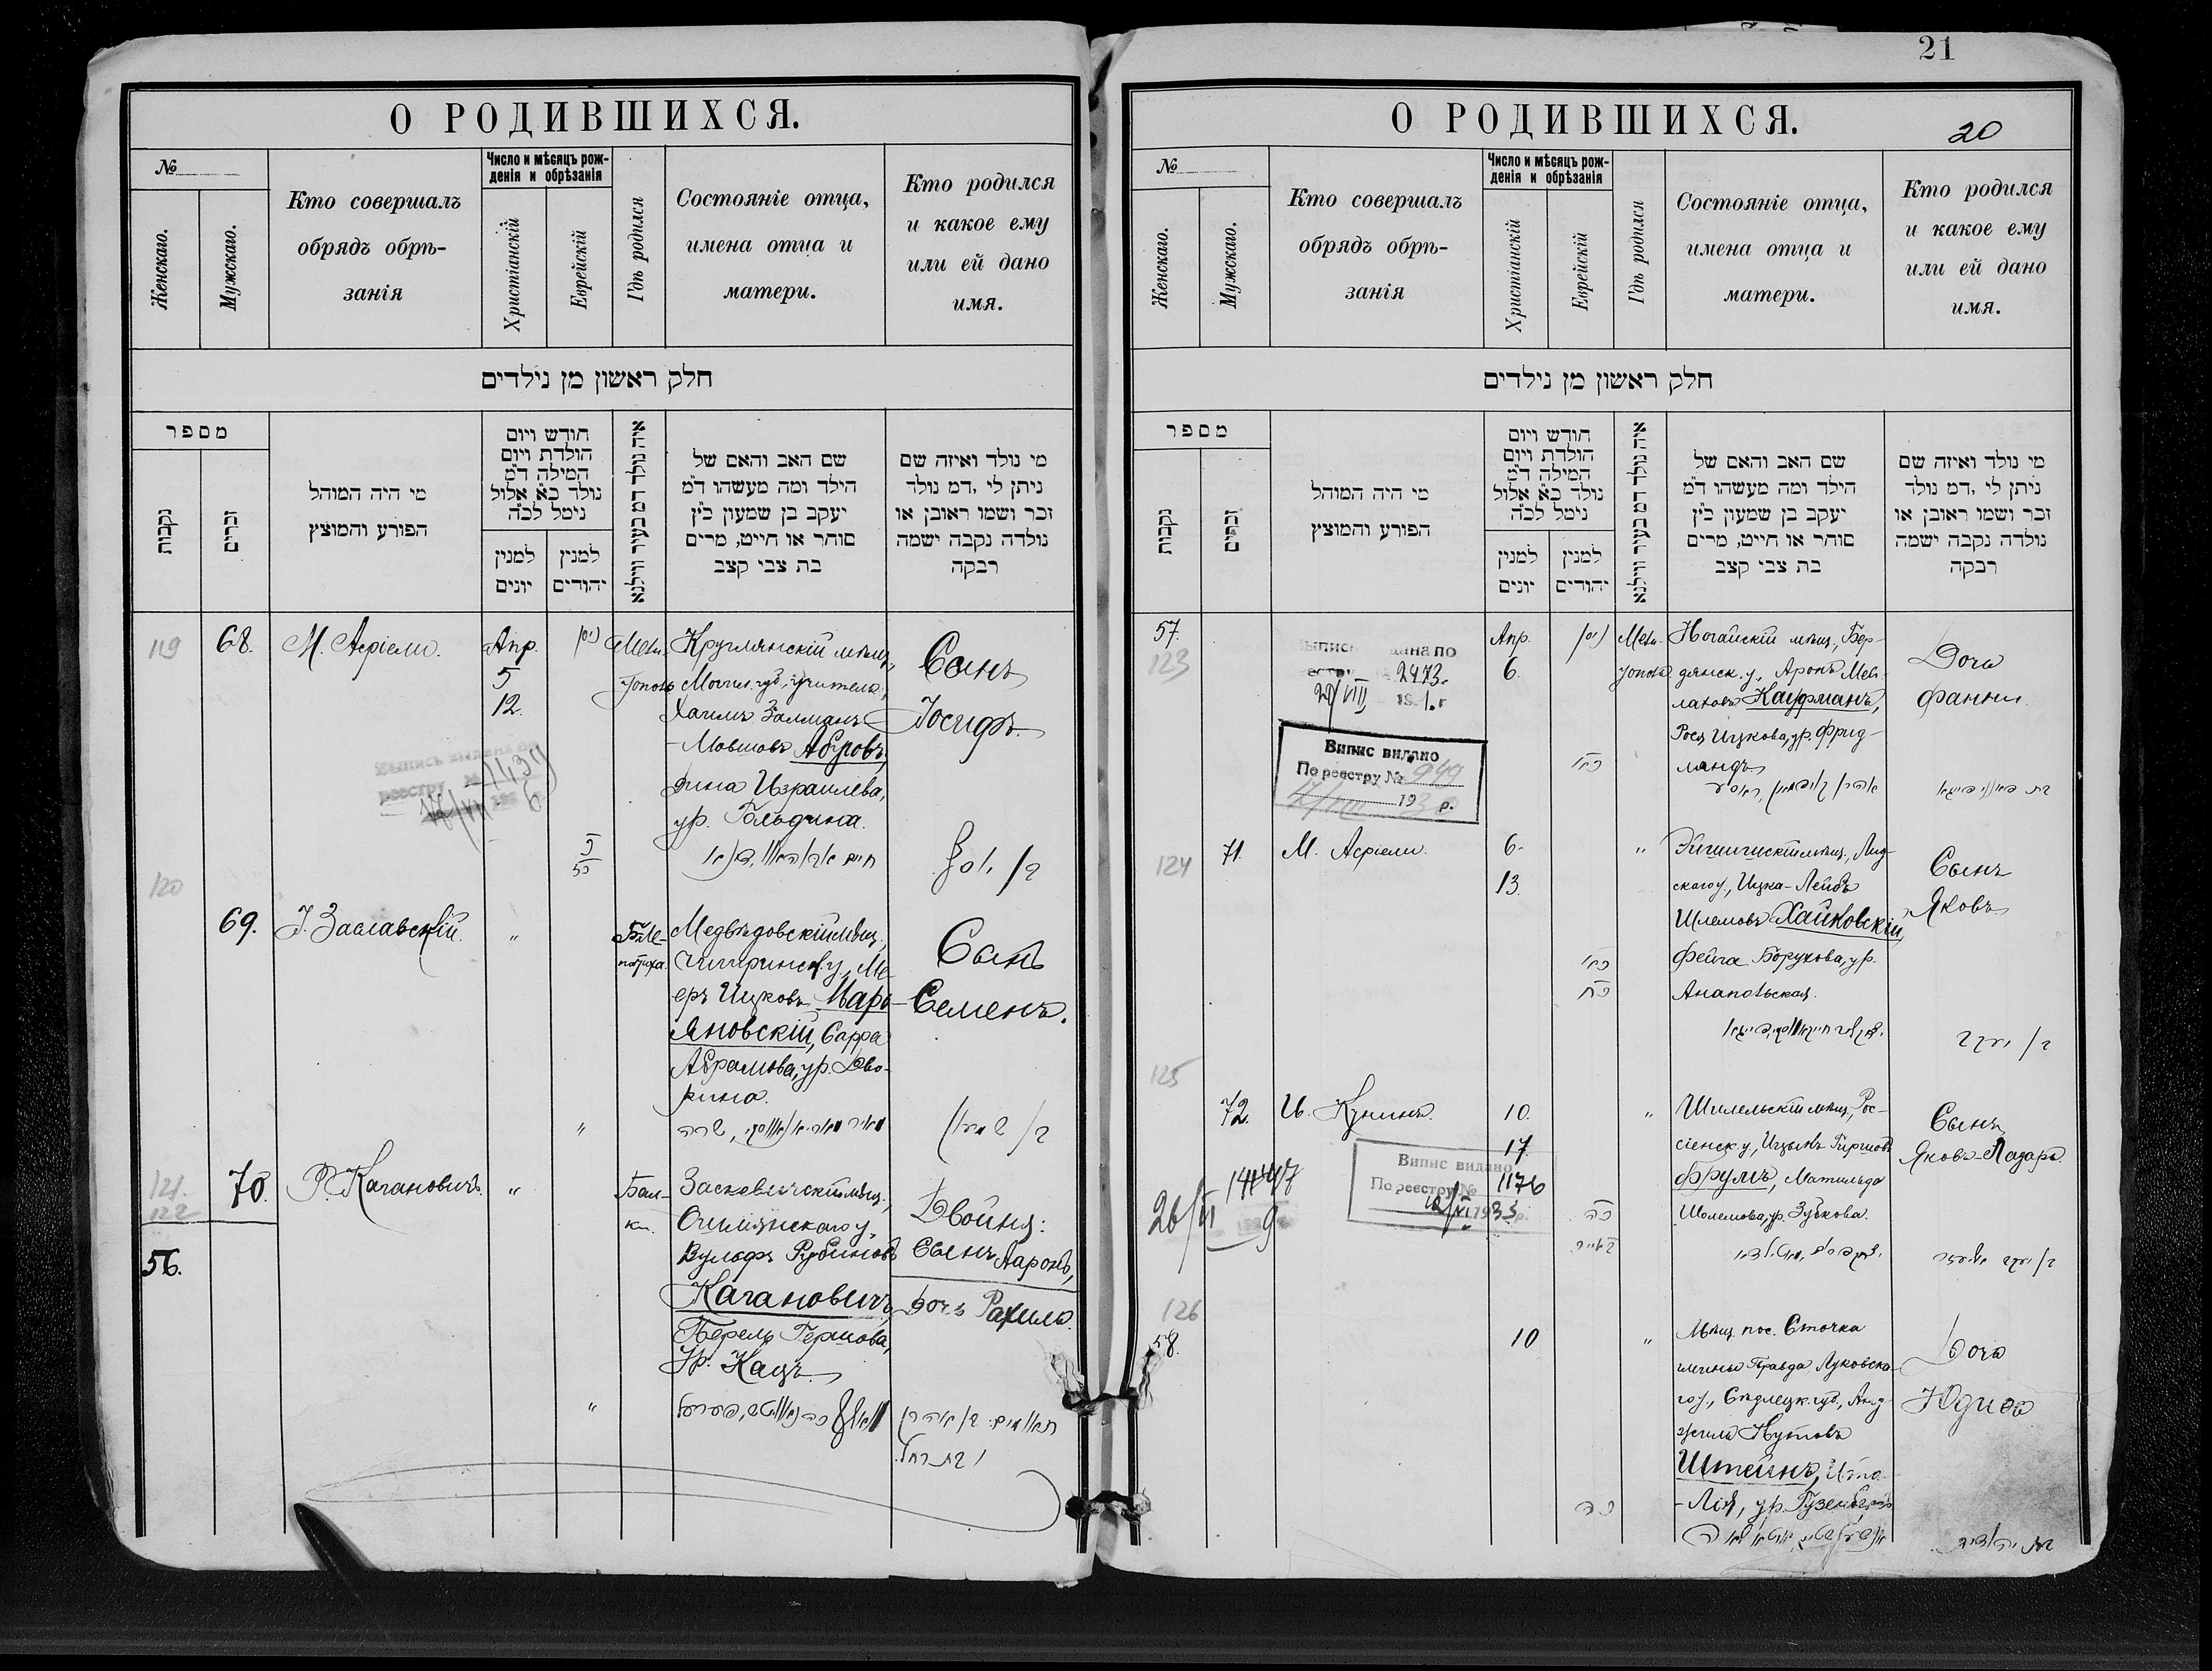 О РОДИВШИХСЯ.
№
Женскаго.
Мужскаго.
Кто совершалъ
обрядъ обрѣ-
занія
Число и мѣсяцъ рож-
денія и обрѣзанія
Христіанскій
Еврейскій
Гдѣ родился
Состояніе отца,
имена отца и
матери.
Кто родился
и какое ему
или ей дано
имя.
חלק ראשון מן נילדים
מספר
נקבות
זכרים
מי היה המוהל
הפורע והמוצץ
חודש ויום
הולדת ויום
המילה ד״מ
נולד כ״א אלול
נימל לכ״ה
למנין
יונים
למנין
יהודים
איה נולד דמ בעיר ווילנא
שם האב והאם של
הילד ומה מעשהו ד״מ
יעקב בן שמעון כ״ץ
סוחר או חייט, מרים
בת צבי קצב
מי נולד ואיזה שם
ניתן לי ,דמ נולד
זכר ושמו ראובן או
נולדה נקבה ישמה
רבקה
119
68.
М. Асріели.
Апр.
5
12.
ניסן
Мели-
тополь
Круглянскій мѣщ.,
Могил. губ., учитель
Хаимъ Залманъ-
-Мовшовъ Абровъ,
Дина Израилева,
ур. Гольдина.
Сынъ
Іосифъ.
בן יוסף
120
69.
І. Заславскій.
"
Медвѣдовскій мѣщ.,
Чигиринск. у., Ме-
еръ Ицковъ Марь-
яновскій, Сарра
Абрамова, ур. Дво-
рина.
Сынъ
Семенъ.
"
121.
122
70.
56.
Р. Кагановичъ.
"
Заскевичскій мѣщ.,
Ошмянскаго у.,
Вульфъ Рубиновъ
Кагановичъ,
Перель Гершова,
ур. Кацъ.
Двойня:
Сынъ Ааронъ,
Дочь Рахиль.
"
תאומים: בן אהרן
ובת רחל.
21
О РОДИВШИХСЯ.
20
№
Женскаго.
Мужскаго.
Кто совершалъ
обрядъ обрѣ-
занія
Число и мѣсяцъ рож-
денія и обрѣзанія
Христіанскій
Еврейскій
Гдѣ родился
Состояніе отца,
имена отца и
матери.
Кто родился
и какое ему
или ей дано
имя.
חלק ראשון מן נילדים
מספר
נקבות
זכרים
מי היה המוהל
הפורע והמוצץ
חודש ויום
הולדת ויום
המילה ד״מ
נולד כ״א אלול
נימל לכ״ה
למנין
יונים
למנין
יהודים
איה נולד דמ בעיר ווילנא
שם האב והאם של
הילד ומה מעשהו ד״מ
יעקב בן שמעון כ״ץ
סוחר או חייט, מרים
בת צבי קצב
מי נולד ואיזה שם
ניתן לי ,דמ נולד
זכר ושמו ראובן או
נולדה נקבה ישמה
רבקה
57.
123
2473.
Випис видано
По реестру № 949
193 р.
Апр.
6.
ניסן
Мели-
тополь
Ногайскій мѣщ., Бер-
дянск. у., Аронъ Мев-
лаховъ Кауфманъ,
Рося Ицкова, ур. Фрид-
ландъ
Дочь
Фанни.
124
71.
М. Асріели.
6.
13.
"
Эйшишкскій мѣщ., Лид-
скаго у., Ицка-Лейбъ
Шлемовъ Хайковскій,
Фейга Борухова, ур.
Анапольская.
Сынъ
Яковъ
בן יעקב
125
72.
И. Кунинъ.
10.
17.
Випис видано
По реестру № 1176
"
Шилельскій мѣщ., Рос-
сіенск. у., Ицыкъ Гиршовъ
Фрумъ, Матильда
Шолемова, ур. Зубкова.
Сынъ
Яковъ-Лазарь.
בן יעקב אליעזר
126
58.
10
"
Мѣщ. пос. Сточка
гмины Правда Луковска-
го у., Сѣдлецк. губ.,
Нутовъ
Штейнъ, Ита-
-Лія, ур. Гузенбергъ
Дочь
Юдиѳь